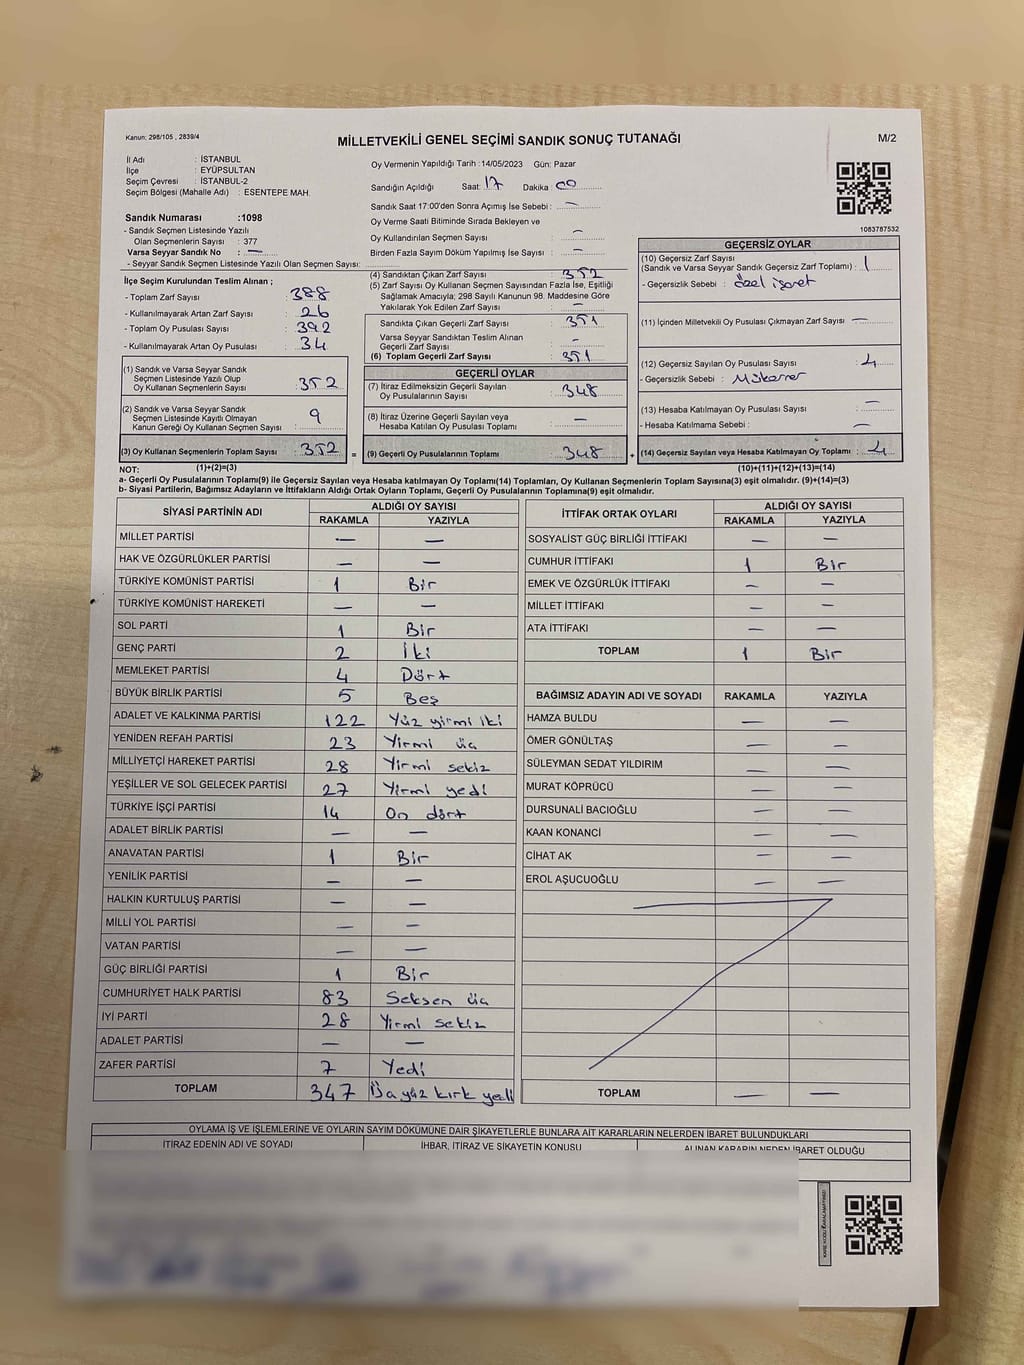 Kanun: 298/105 , 2839/4
MİLLETVEKİLİ GENEL SEÇİMİ SANDIK SONUÇ TUTANAĞI
M/2
İl Adı : İSTANBUL
İlçe : EYÜPSULTAN
Seçim Çevresi : İSTANBUL-2
Seçim Bölgesi (Mahalle Adı) : ESENTEPE MAH.
Sandık Numarası :1098
- Sandık Seçmen Listesinde Yazılı
Olan Seçmenlerin Sayısı : 377
Varsa Seyyar Sandık No : —
- Seyyar Sandık Seçmen Listesinde Yazılı Olan Seçmen Sayısı:
Oy Vermenin Yapıldığı Tarih :14/05/2023 Gün: Pazar
Sandığın Açıldığı Saat: 17 Dakika 00
Sandık Saat 17:00'den Sonra Açımış İse Sebebi : —
Oy Verme Saati Bitiminde Sırada Bekleyen ve
Oy Kullandırılan Seçmen Sayısı : —
Birden Fazla Sayım Döküm Yapılmış İse Sayısı : —
1083787532
İlçe Seçim Kurulundan Teslim Alınan ;
- Toplam Zarf Sayısı : 388
- Kullanılmayarak Artan Zarf Sayısı : 26
- Toplam Oy Pusulası Sayısı : 392
- Kullanılmayarak Artan Oy Pusulası : 34
(1) Sandık ve Varsa Seyyar Sandık
Seçmen Listesinde Yazılı Olup
Oy Kullanan Seçmenlerin Sayısı : 352
(2) Sandık ve Varsa Seyyar Sandık
Seçmen Listesinde Kayıtlı Olmayan
Kanun Gereği Oy Kullanan Seçmen Sayısı : 9
(3) Oy Kullanan Seçmenlerin Toplam Sayısı : 352
(4) Sandıktan Çıkan Zarf Sayısı : 352
(5) Zarf Sayısı Oy Kullanan Seçmen Sayısından Fazla İse, Eşitliği
Sağlamak Amacıyla; 298 Sayılı Kanunun 98. Maddesine Göre
Yakılarak Yok Edilen Zarf Sayısı : —
Sandıkta Çıkan Geçerli Zarf Sayısı : 351
Varsa Seyyar Sandıktan Teslim Alınan
Geçerli Zarf Sayısı : -
(6) Toplam Geçerli Zarf Sayısı : 351
GEÇERLİ OYLAR
(7) İtiraz Edilmeksizin Geçerli Sayılan
Oy Pusulalarının Sayısı : 348
(8) İtiraz Üzerine Geçerli Sayılan veya
Hesaba Katılan Oy Pusulası Toplamı : —
= (9) Geçerli Oy Pusulalarının Toplamı : 348 +
GEÇERSİZ OYLAR
(10) Geçersiz Zarf Sayısı
(Sandık ve Varsa Seyyar Sandık Geçersiz Zarf Toplamı) : 1
- Geçersizlik Sebebi : özel işaret
(11) İçinden Milletvekili Oy Pusulası Çıkmayan Zarf Sayısı : —
(12) Geçersiz Sayılan Oy Pusulası Sayısı : 4
- Geçersizlik Sebebi : Mükerrer
(13) Hesaba Katılmayan Oy Pusulası Sayısı : —
- Hesaba Katılmama Sebebi : —
(14) Geçersiz Sayılan veya Hesaba Katılmayan Oy Toplamı : 4
NOT: (1)+(2)=(3) (10)+(11)+(12)+(13)=(14)
a- Geçerli Oy Pusulalarının Toplamı(9) ile Geçersiz Sayılan veya Hesaba katılmayan Oy Toplamı(14) Toplamları, Oy Kullanan Seçmenlerin Toplam Sayısına(3) eşit olmalıdır. (9)+(14)=(3)
b- Siyasi Partilerin, Bağımsız Adayların ve İttifakların Aldığı Ortak Oyların Toplamı, Geçerli Oy Pusulalarının Toplamına(9) eşit olmalıdır.
SİYASİ PARTİNİN ADI ALDIĞI OY SAYISI
RAKAMLA YAZIYLA
MİLLET PARTİSİ — —
HAK VE ÖZGÜRLÜKLER PARTİSİ — —
TÜRKİYE KOMÜNİST PARTİSİ 1 Bir
TÜRKİYE KOMÜNİST HAREKETİ — —
SOL PARTİ 1 Bir
GENÇ PARTİ 2 İki
MEMLEKET PARTİSİ 4 Dört
BÜYÜK BİRLİK PARTİSİ 5 Beş
ADALET VE KALKINMA PARTİSİ 122 Yüz yirmi iki
YENİDEN REFAH PARTİSİ 23 Yirmi üç
MİLLİYETÇİ HAREKET PARTİSİ 28 Yirmi sekiz
YEŞİLLER VE SOL GELECEK PARTİSİ 27 Yirmi yedi
TÜRKİYE İŞÇİ PARTİSİ 14 On dört
ADALET BİRLİK PARTİSİ — —
ANAVATAN PARTİSİ 1 Bir
YENİLİK PARTİSİ — —
HALKIN KURTULUŞ PARTİSİ — —
MİLLİ YOL PARTİSİ — —
VATAN PARTİSİ — —
GÜÇ BİRLİĞİ PARTİSİ 1 Bir
CUMHURİYET HALK PARTİSİ 83 Seksen üç
İYİ PARTİ 28 Yirmi sekiz
ADALET PARTİSİ — —
ZAFER PARTİSİ 7 Yedi
TOPLAM 347 Üç yüz kırk yedi
İTTİFAK ORTAK OYLARI ALDIĞI OY SAYISI
RAKAMLA YAZIYLA
SOSYALİST GÜÇ BİRLİĞİ İTTİFAKI — —
CUMHUR İTTİFAKI 1 Bir
EMEK VE ÖZGÜRLÜK İTTİFAKI — —
MİLLET İTTİFAKI — —
ATA İTTİFAKI — —
TOPLAM 1 Bir
BAĞIMSIZ ADAYIN ADI VE SOYADI RAKAMLA YAZIYLA
HAMZA BULDU — —
ÖMER GÖNÜLTAŞ — —
SÜLEYMAN SEDAT YILDIRIM — —
MURAT KÖPRÜCÜ — —
DURSUNALİ BACIOĞLU — —
KAAN KONANCİ — —
CİHAT AK — —
EROL AŞUCUOĞLU — —
TOPLAM — —
OYLAMA İŞ VE İŞLEMLERİNE VE OYLARIN SAYIM DÖKÜMÜNE DAİR ŞİKAYETLERLE BUNLARA AİT KARARLARIN NELERDEN İBARET BULUNDUKLARI
İTİRAZ EDENİN ADI VE SOYADI İHBAR, İTİRAZ VE ŞİKAYETİN KONUSU ALINAN KARARIN NEDEN İBARET OLDUĞU